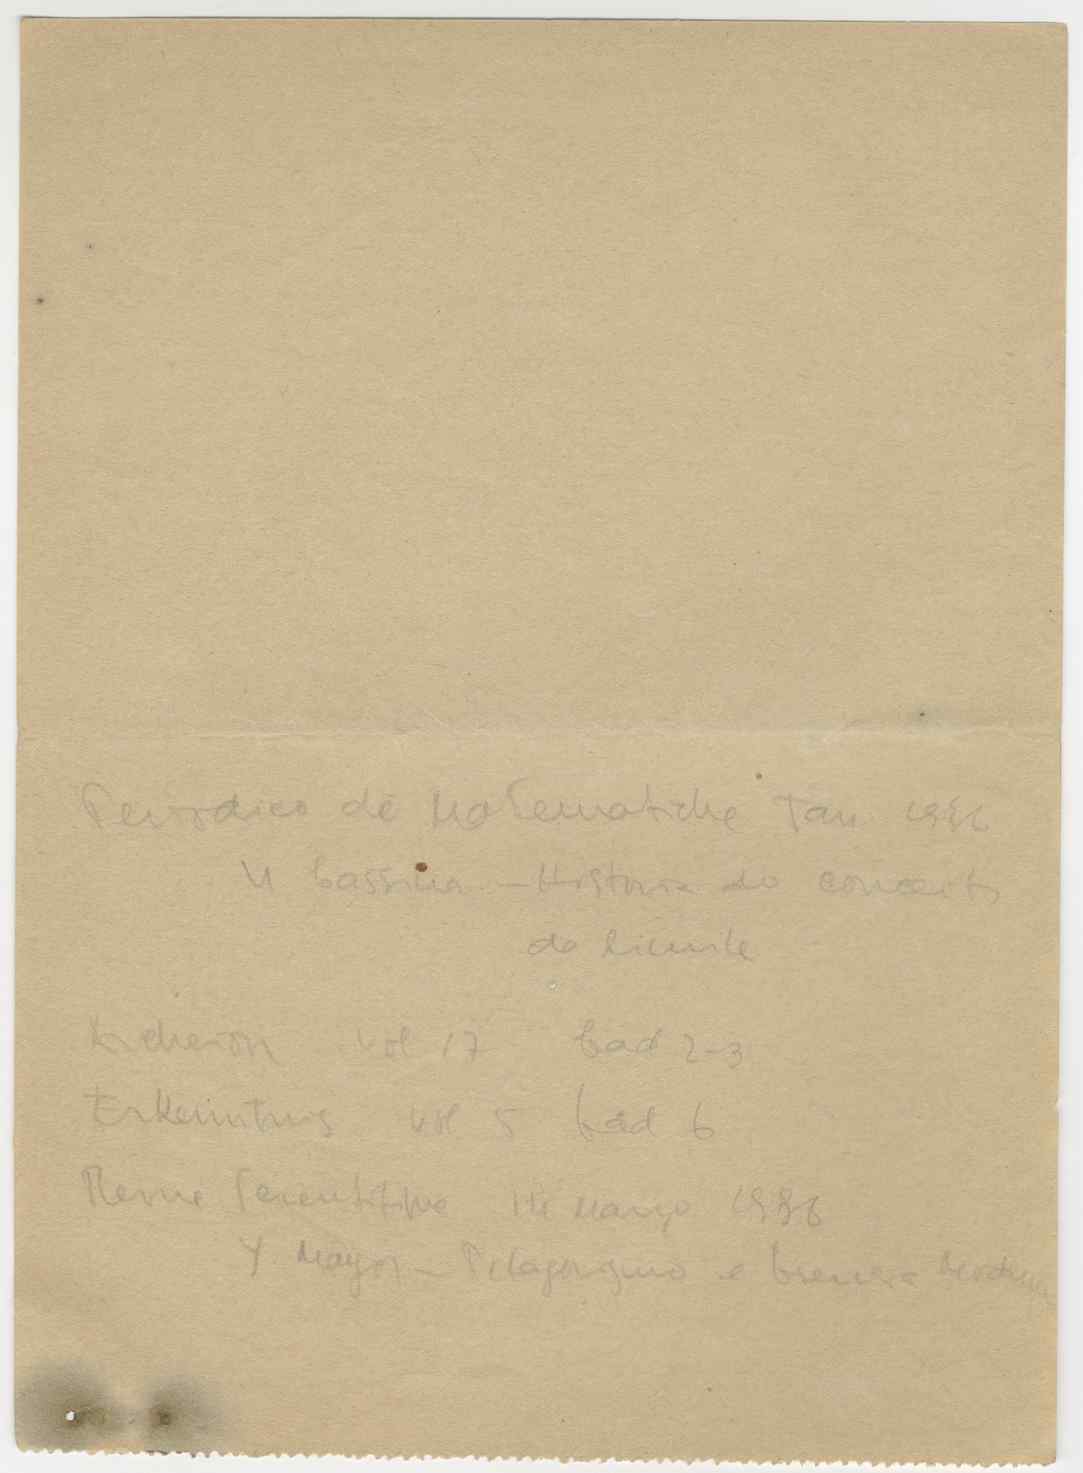 Periodico de Matematiche Jan 1936
U Cassina - Historia do conceito
de limite
Acheron vol 17 Cad 2-3
Erkenntnis vol 5 Cad 6
Revue Scientifique 14 Março 1936
Y Mayor - Pitagorismo e sciencia moderna